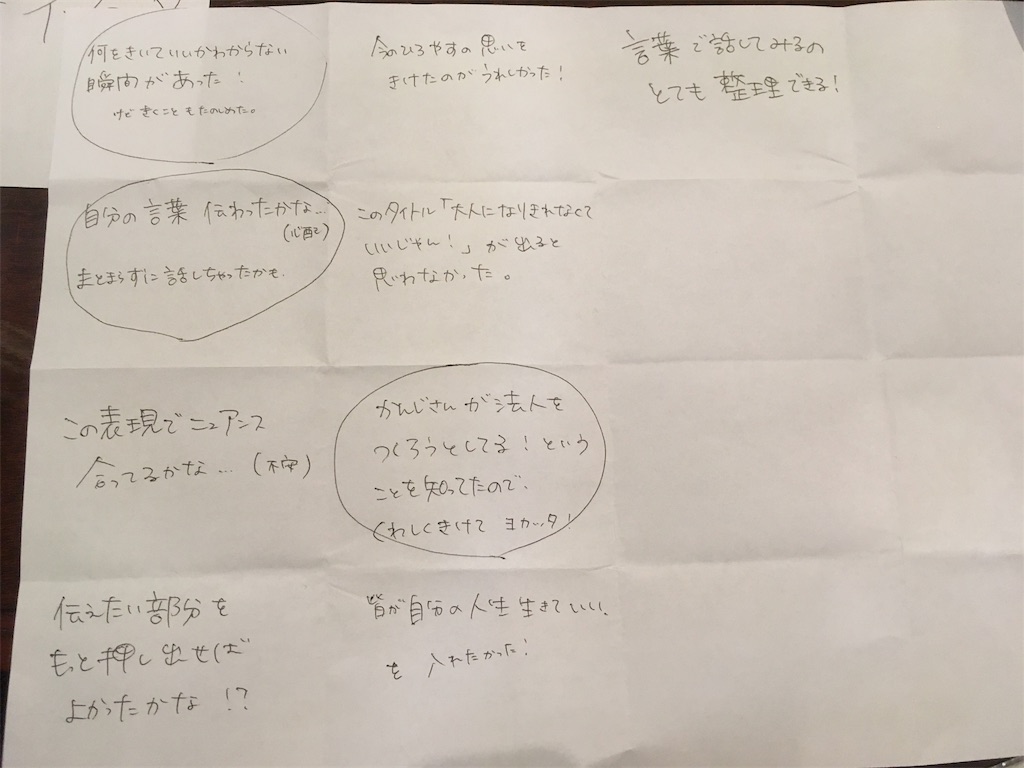 何をきいていいかわからない
瞬間があった！
けど きくこともたのしめた。
今のひろやすの思いを
きけたのがうれしかった！
言葉で話してみるの
とても整理できる！
自分の言葉 伝わったかな…
(心配)
まとまらずに話しちゃったかも。
このタイトル「大人になりきれなくて
いいじゃん！」が出ると
思わなかった。
この表現でニュアンス
合ってるかな…(不安)
かんじさんが法人を
つくろうとしてる！という
ことを知ってたので、
くわしくきけてヨカッタ！
伝えたい部分を
もっと押し出せば
よかったかな!?
皆が自分の人生生きていい、
を入れたかった！